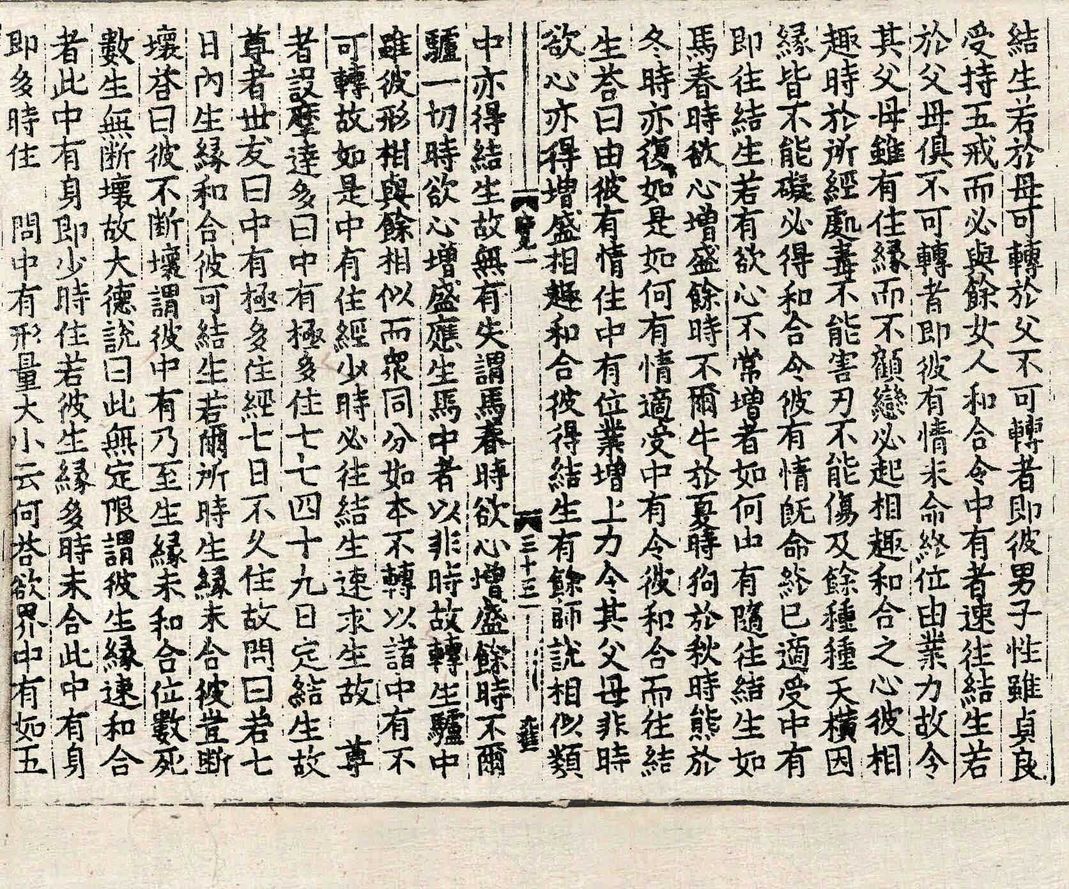 結生若於母可轉於父不可轉者即彼男子性雖貞良
受持五戒而必與餘女人和合令中有者速往結生若
於父母俱不可轉者即彼有情未命終位由業力故令
其父母雖有住緣而不顧戀必起相趣和合之心彼相
趣時於所經處毒不能害刃不能傷及餘種種夭橫因
緣皆不能礙必得和合令彼有情旣命終已適受中有
即往結生若有欲心不常增者如何中有隨往結生如
馬春時欲心增盛餘時不爾牛於夏時狗於秋時熊於
冬時亦復如是如何有情適受中有令彼和合而往結
生荅曰由彼有情住中有位業增上力令其父母非時
欲心亦得增盛相趣和合彼得結生有餘師說相似類
覽一 三十三
中亦得結生故無有失謂馬春時欲心增盛餘時不爾
驢一切時欲心增盛應生馬中者以非時故轉生驢中
雖彼形相與餘相似而衆同分如本不轉以諸中有不
可轉故如是中有住經少時必往結生速求生故 尊
者設摩達多曰中有極多住七七四十九日定結生故
尊者世友曰中有極多住經七日不久住故問曰若七
日內生緣和合彼可結生若爾所時生緣未合彼豈斷
壞荅曰彼不斷壞謂彼中有乃至生緣未和合位數死
數生無斷壞故大德說曰此無定限謂彼生緣速和合
者此中有身即少時住若彼生緣多時未合此中有身
即多時住 問中有形量大小云何荅欲界中有如五